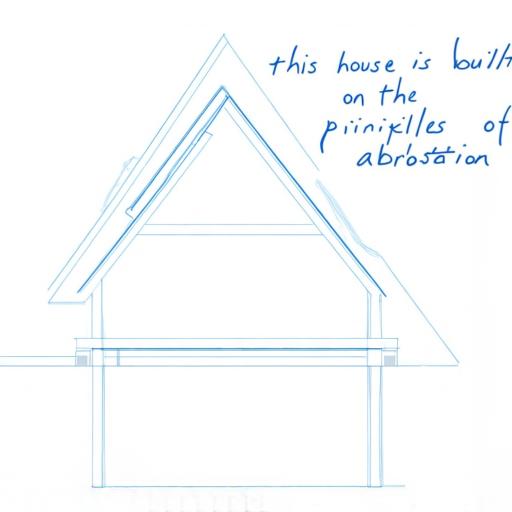 this house is built
on the
piinixlles of
abrostation